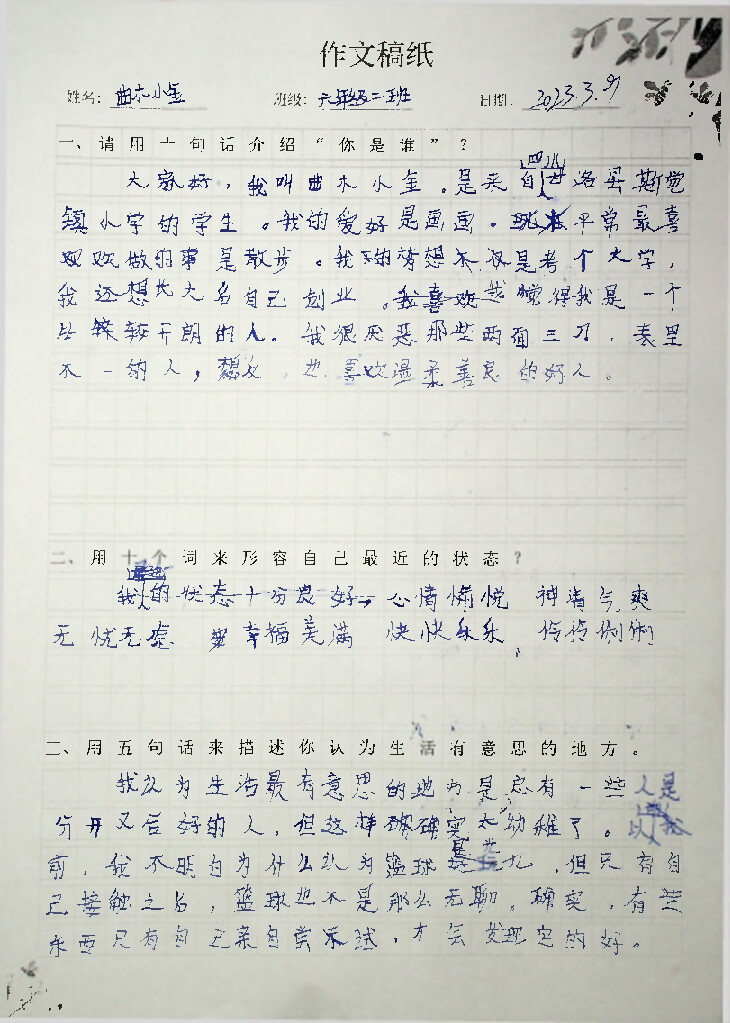 作文稿纸
姓名: 曲木小金 班级: 六年级二班 日期: 2023.3.9
一、请用十句话介绍“你是谁”?
四川
大家好,我叫曲木小金。是来自 洛县斯觉
镇小学的学生。我的爱好是画画。平常最喜
欢做的事是散步。我的梦想不仅是考个大学,
我还想长大名自己创业。我喜欢 觉得我是一个
比较开朗的人。我很厌恶那些两面三刀,表里
不一的人,也喜欢温柔善良的好人。
二、用十个词来形容自己最近的状态?
最近
我的状态十分良好,心情愉悦 神清气爽
无忧无虑 幸福美满 快快乐乐、伶伶俐俐
三、用五句话来描述你认为生活有意思的地方。
我认为生活最有意思的地方是总有一些人是
分开又后好的人,但这样确实太幼稚了。以
前,我不明白为什么认为篮球是 ,但只有自
己接触之后,篮球也不是那么无聊。确实,有些
东西只有自己亲自尝试,才会发现它的好。